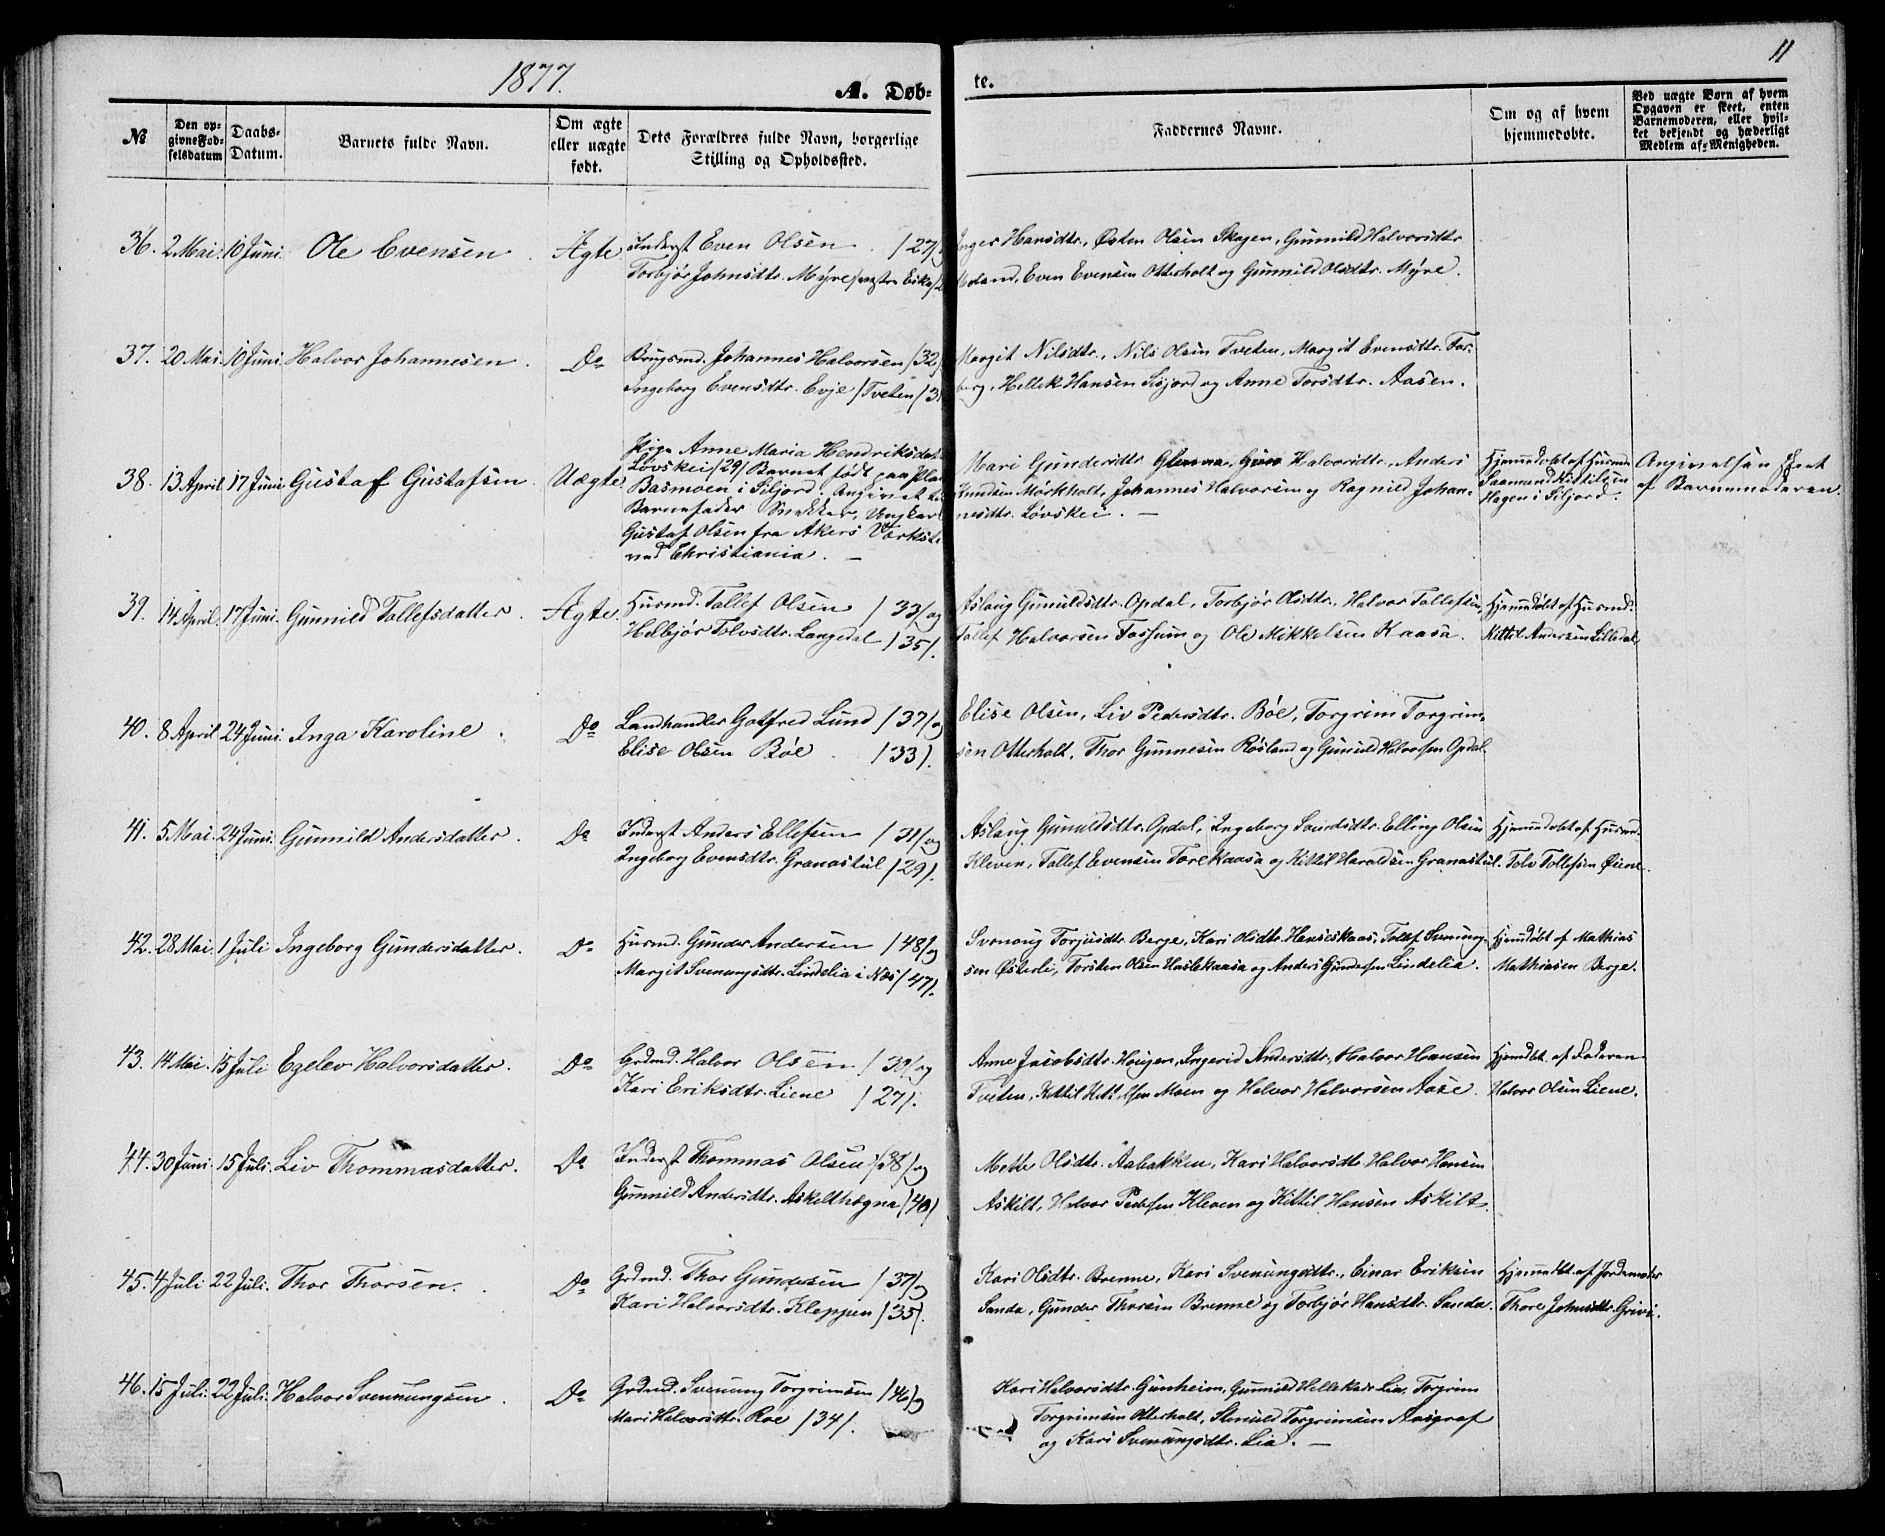 1877.
A. Døb-
te.
11
№
Den op-
givne Fød-
selsdatum
Daabs-
Datum.
Barnets fulde Navn.
Om ægte
eller uægte
født.
Dets Forældres fulde Navn, borgerlige
Stilling og Opholdssted.
Faddernes Navne.
Om og af hvem
hjemmedøbte.
Ved uægte Børn af hvem
Opgaven er skeet, enten
Barnemoderen, eller hvil-
ket bekjendt og hæderligt
Medlem af Menigheden.
36. 2 Mai. 10 Juni. Ole Evensen. Ægte Inderst Even Olsen /27/
Torbjør Johnsdtr. Myre
Inger Hansdtr., Østen Olsen Skogen, Gunnild Halvorsdtr.
Moland, Even Evensen Otterholt og Gunnild Olsdtr. Myre.
37. 20 Mai. 10 Juni. Halvor Johannesen. Do Brugsmd. Johannes Halvorsen /32/
Ingeborg Evensdtr. Evje /Tveten/
Margit Nilsdtr., Nils Olsen Tveten, Margit Evensdtr. For-
berg, Hellek Hansen Sisjord og Anne Torsdtr. Aasen.
38. 13 April 17 Juni Gustaf Gustafsen. Uægte. Pige Anne Maria Hendriksdat
Løvskei /29/ Barnet født paa Pla
Basmoen i Siljord. angivet
Barnefader Snekker, Ungkarl
Gustaf Olsen fra Akers Værkste
ved Christiania. —
Mari Gundersdtr. Halvorsdtr., Anders
Knudsen Mørkholt, Johannes Halvorsen og Ragnild Johan-
nesdtr. Løvskei. —
Hjemmedøbt af Husmd.
Saamund Kittilsen
Hagen i Siljord.
Angivelsen skeet
af Barnemoderen.
39. 14 April. 17 Juni. Gunnild Tollefsdatter. Ægte. Husmd. Tallef Olsen /33/ og
Helbjør Tolvsdtr. Langedal /35/.
Aslaug Gunuldsdtr. Opdal, Torbjør Olsdtr., Halvor Tallefsen,
Tallef Halvorsen Fossum og Ole Mikkelsen Kaasa.
Hjemmdøbt af Husmd.
Kittil Andersen Lilledal.
40. 8 April 24 Juni. Inga Karoline. Do Landhandler Gotfred Lund /37/ og
Elise Olsen Bøe /33/.
Elise Olsen, Liv Pedersdtr. Bøe, Torgrim Torgrim-
sen Otterholt, Thor Gunnesen Røsland og Gunuld Halvorsen Opdal.
41. 5 Mai. 24 Juni. Gunnild Andersdatter. Do Inderst Anders Ellefsen /31/ og
Ingeborg Evensdtr. Granastul /29/.
Aslaug Gunuldsdtr. Opdal, Ingeborg Elling Olsen
Kleven, Tallef Evensen Torekaasa og Kittil Haraldsen Granastul.
Hjemmdøbt af Husmd.
Tolv Tollefsen Øiene.
42. 28 Mai. 1 Juli Ingeborg Gundersdatter. Do Husmd. Gunder Andersen /48/ og
Margit Svenungsdtr. Lindelia i Næs /47/.
Svonaug Torjusdtr. Berge, Kari Olsdtr. Tollef Svenung-
sen Østerli, Torsten Olsen Haslekaasa og Anders Gundersen Lindelia.
Hjemdøbt af Mathias
Mathiasen Berge.
43. 14 Mai. 15 Juli Egelev Halvorsdatter. Do Grdmd. Halvor Olsen /30/ og
Kari Eriksdtr. Liene /27/.
Anne Jacobsdtr. Haugen, Ingerid Andersdtr., Halvor Hansen
Tveten, Kittil Kittilsen Moen og Halvor Halvorsen Aase.
Hjemdbt. af Faderen
Halvor Olsen Liene.
44. 30 Juni. 15 Juli. Liv Thommasdatter. Do Inderst Thommas Olsen /38/ og
Gunnild Andersdtr. Askelthægna /40/
Mette Olsdtr. Aabakken, Kari Halvorsdtr. Halvor Hansen
Askilt, Halvor Pedersen Kleven og Kittil Hansen Askilt.
45. 4 Juli 22 Juli. Thor Thorsen. Do Grdmd. Thor Gundersen /37/ og
Kari Halvorsdtr. Kleppen /35/.
Kari Olsdtr. Brenne, Kari Svenungsdtr., Einar Eriksen
Sanda, Gunder Thorsen Brenne og Torbjør Hansdtr. Sanda.
Hjemmdbt. af Jordemoder
Thore Johnsdtr. Grivi.
46. 15 Juli. 22 Juli. Halvor Svennungsen. Do Grdmd. Svenung Torgrimsen /46/ og
Mari Halvorsdtr. Roe /34/.
Kari Halvorsdtr. Gunheim, Gunnild Helleksdr. Lia, Torgrim
Torgrimsen Otterholt, Stenuld Torgrimsen Aasgraf
og Kari Svenungsdtr. Lia. —